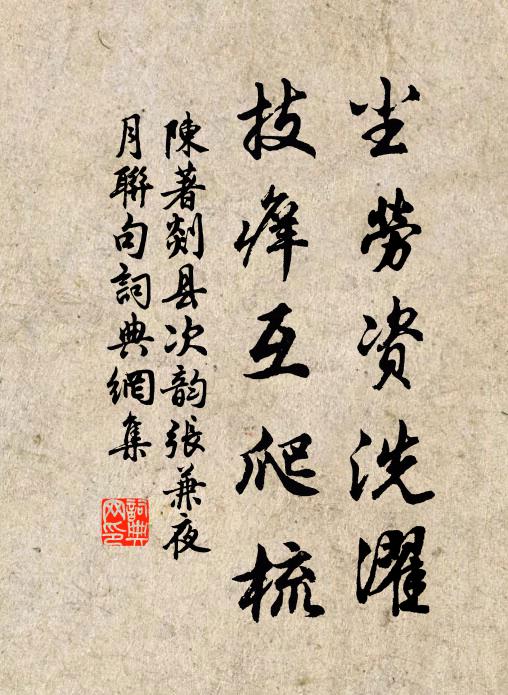 尘劳资洗濯
技痒互爬梳
陳著剡县次韵張兼夜
月聯句詞典網集
詞典网印